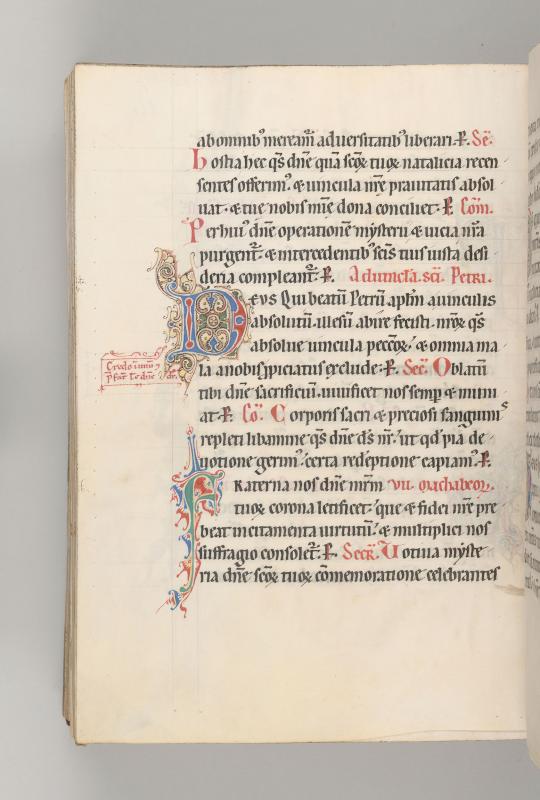 ab omnib' meream̃ adversitatib' liberari. P. Sec̃.
hostia hec q̃s dñe quã scõꝝ tuoꝝ natalicia recen
sentes offerim'. & uincula nr̃e prauitatis absol
uat. & tue nobis mĩe dona conciliet. P. Com̃.
Perhui' dñe operationẽ mysterii & uicia nr̃a
purgent̃. & intercedentib' scĩs tuis iusta desi
deria compleant̃. P. Ad uincla. sci. Petri.
Deus Qui beatũ Petrũ aplm̃ a uinculis
absolutũ. illesũ abire fecisti. nr̃oꝝ q̃s
absolue uincula peccõꝝ. & omnia ma
la a nobis ꝓpiciatus exclude. P. Sec̃. Oblatũ
tibi dñe sacrificiũ. uiuificet nos semꝑ & muni
at. P. Co. Corporis sacri & preciosi sanguinis
repleti libamine q̃s dñe ds̃ nr̃. ut qd̃ pia de
uotione gerim'. certa redẽptione capiam'. P.
Fraterna nos dñe mr̃m. VII. Machabeoꝝ.
tuoꝝ corona letificet. que & fidei nr̃e pre
beat incitamenta uirtutũ. & multiplici nos
suffragio consolet̃. P. Secr̃. Uotiua myste
ria dñe scõꝝ tuoꝝ cõmemoratione celebrantes
Credo unũ